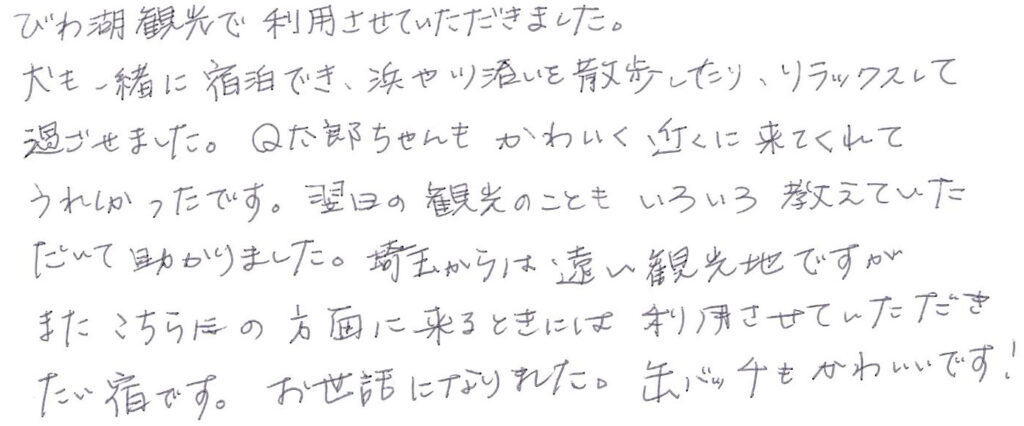 びわ湖観光で利用させていただきました。
犬も一緒に宿泊でき、浜や川沿いを散歩したり、リラックスして
過ごせました。Q太郎ちゃんもかわいく近くに来てくれて
うれしかったです。翌日の観光のこともいろいろ教えていた
だいて助かりました。埼玉からは遠い観光地ですが
またこちらの方面に来るときには利用させていただき
たい宿です。お世話になりました。缶バッチもかわいいです!